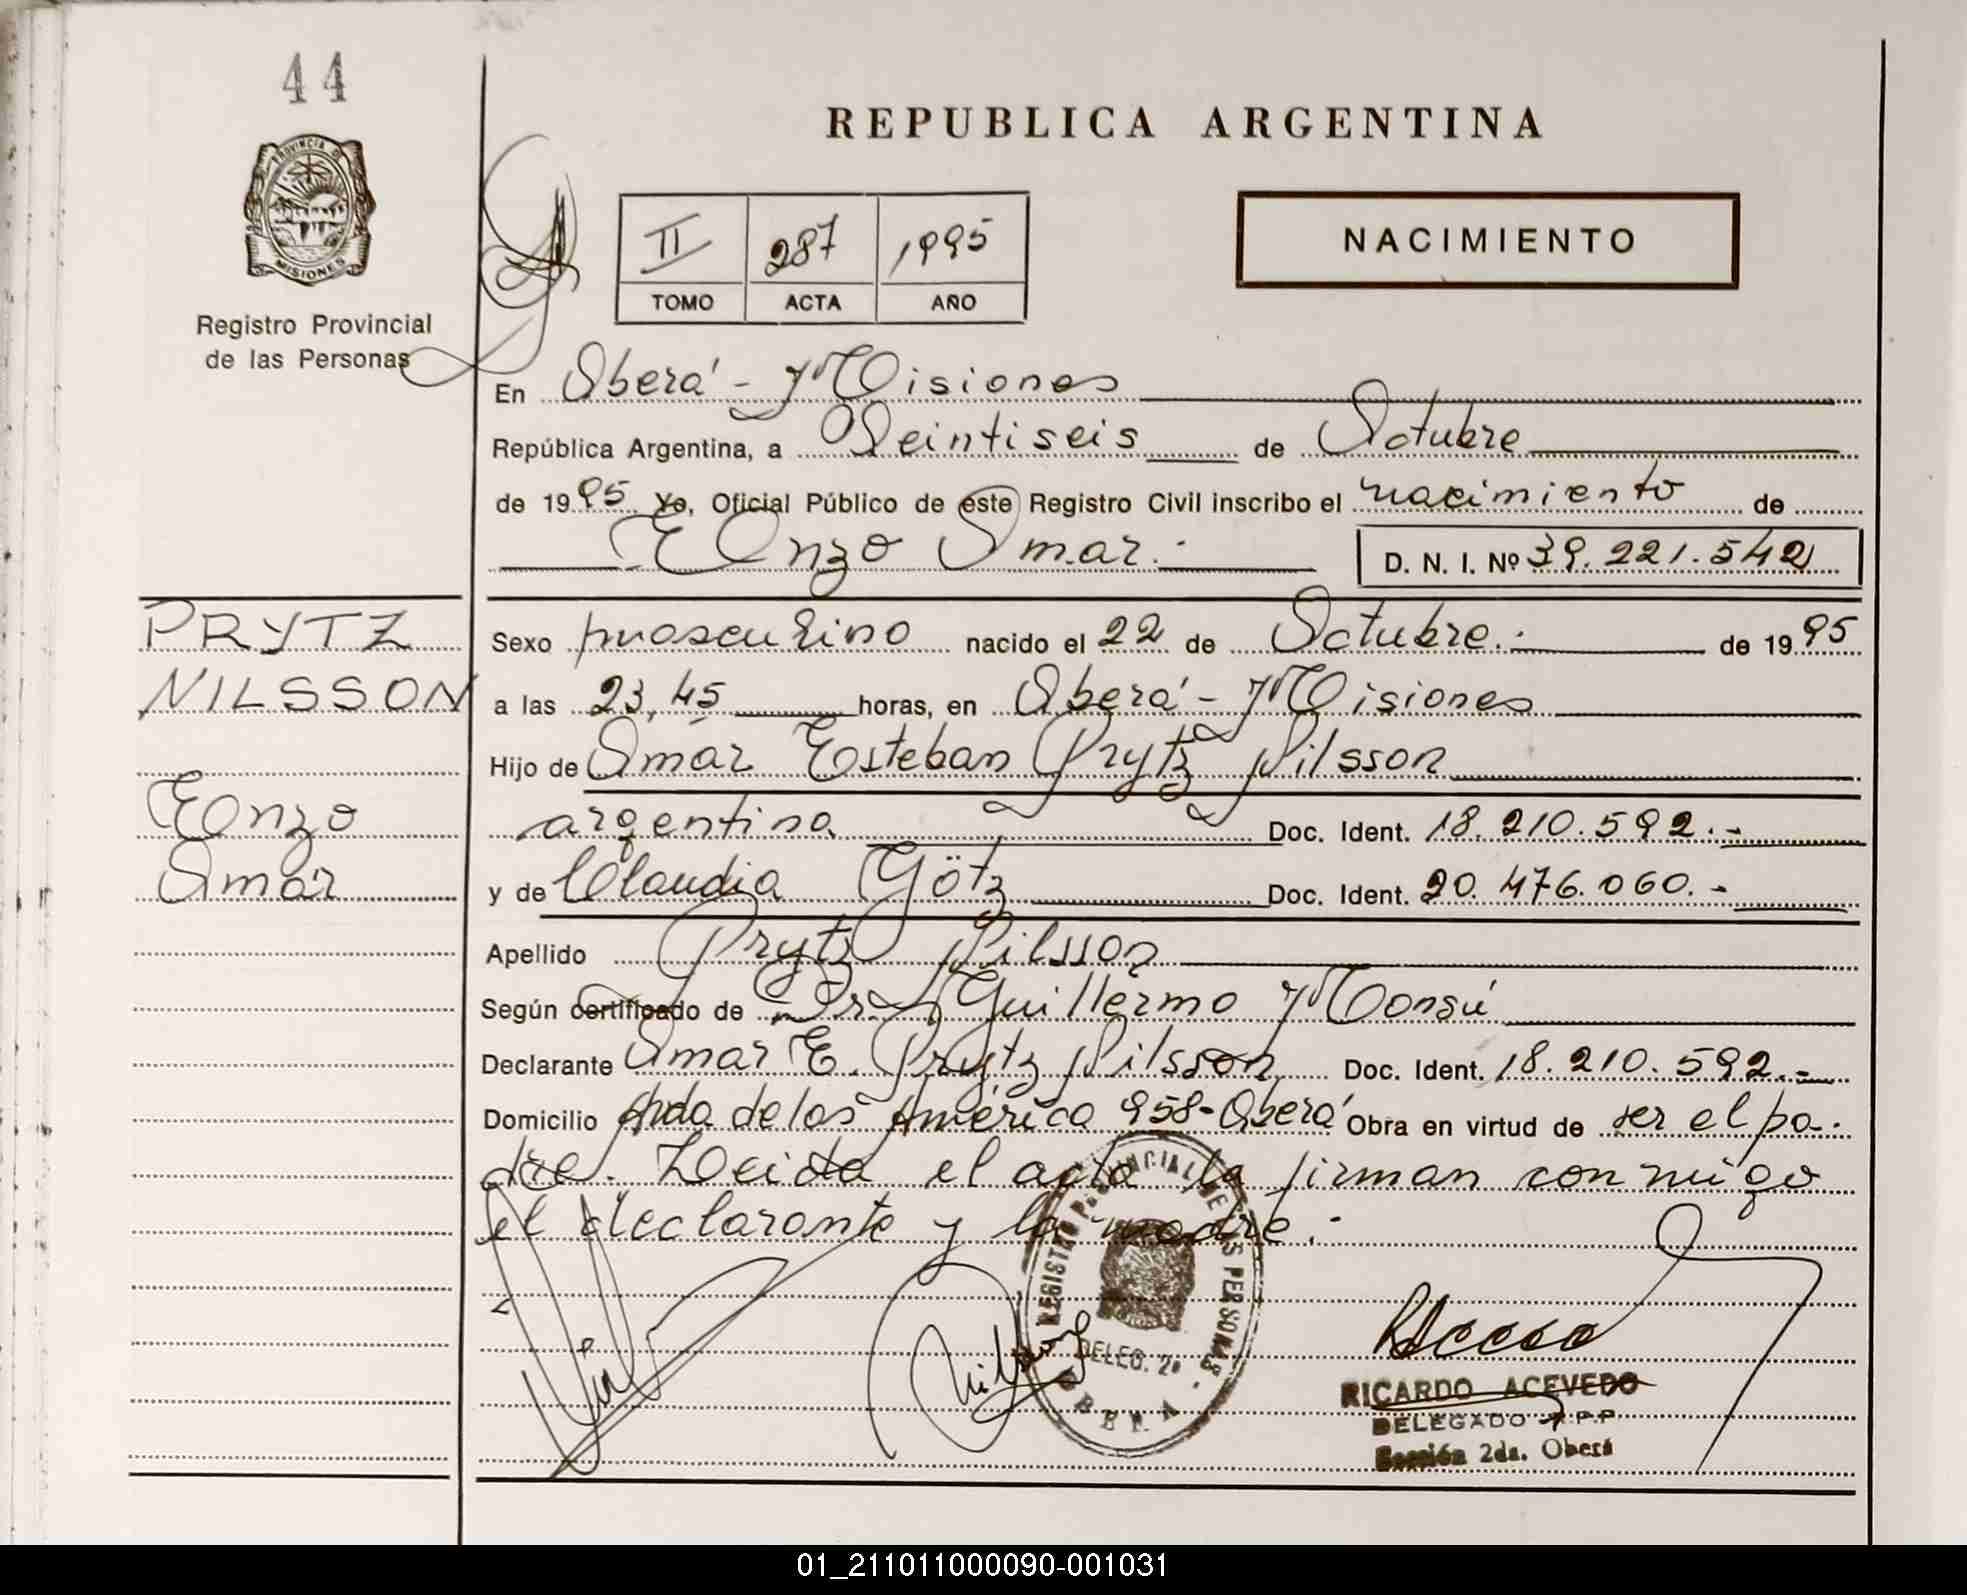 44
REPUBLICA ARGENTINA
PROVINCIA DE
MISIONES
Registro Provincial
de las Personas
II 287 1995
TOMO ACTA AÑO
NACIMIENTO
En Oberá - Misiones
República Argentina, a Veintiseis de Octubre
de 1995 Yo, Oficial Público de este Registro Civil inscribo el nacimiento de
Enzo Omar.-
D. N. I. Nº 39.221.542
PRYTZ
NILSSON
Enzo
Omar
Sexo masculino nacido el 22 de Octubre.- de 1995
a las 23,45 horas, en Oberá - Misiones
Hijo de Omar Esteban Prytz Nilsson
argentino Doc. Ident. 18.210.592.-
y de Claudia Götz Doc. Ident. 20.476.060.-
Apellido Prytz Nilsson
Según certificado de Dr. Guillermo Monsú
Declarante Omar E. Prytz Nilsson Doc. Ident. 18.210.592.-
Domicilio Avda de las América 958-Oberá Obra en virtud de ser el pa-
dre. Leida el acta la firman conmigo
el declarante y la madre.-
REGISTRO PROVINCIAL DE LAS PERSONAS
DELEG. 2ª
OBERA
RICARDO ACEVEDO
DELEGADO R.P.P
Sección 2da. Oberá
01_211011000090-001031